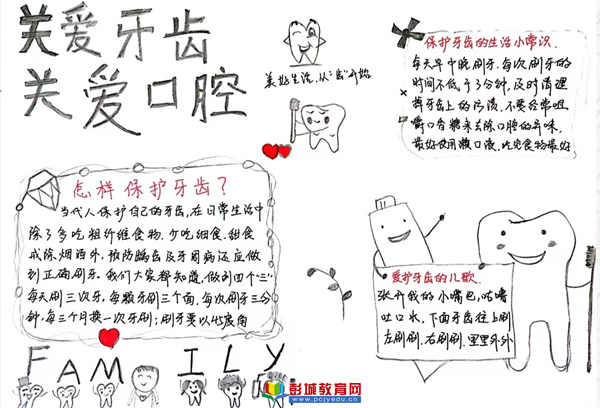 关爱牙齿
关爱口腔
美好生活,从"齿"开始
保护牙齿的生活小常识.
每天早中晚刷牙.每次刷牙的
时间不低于3分钟,及时清理
掉牙齿上的污渍,不要经常咀
嚼口香糖来去除口腔的异味.
最好使用漱口液,吃完食物最好
怎样保护牙齿?
当代人保护自己的牙齿,在日常生活中
除了多吃粗纤维食物.少吃细食.甜食
戒除烟酒外.预防龋齿及牙周病还应做
到正确刷牙.我们大家都知道,做到四个"三"
每天刷三次牙,每颗牙刷三个面,每次刷牙三分
钟,每三个月换一次牙刷;刷牙要以45度角
爱护牙齿的儿歌.
张开我的小嘴巴,咕噜
吐口水,下面牙齿往上刷
左刷刷.右刷刷.里里外外
FAMILY
彭城教育网
www.pcjyedu.cn